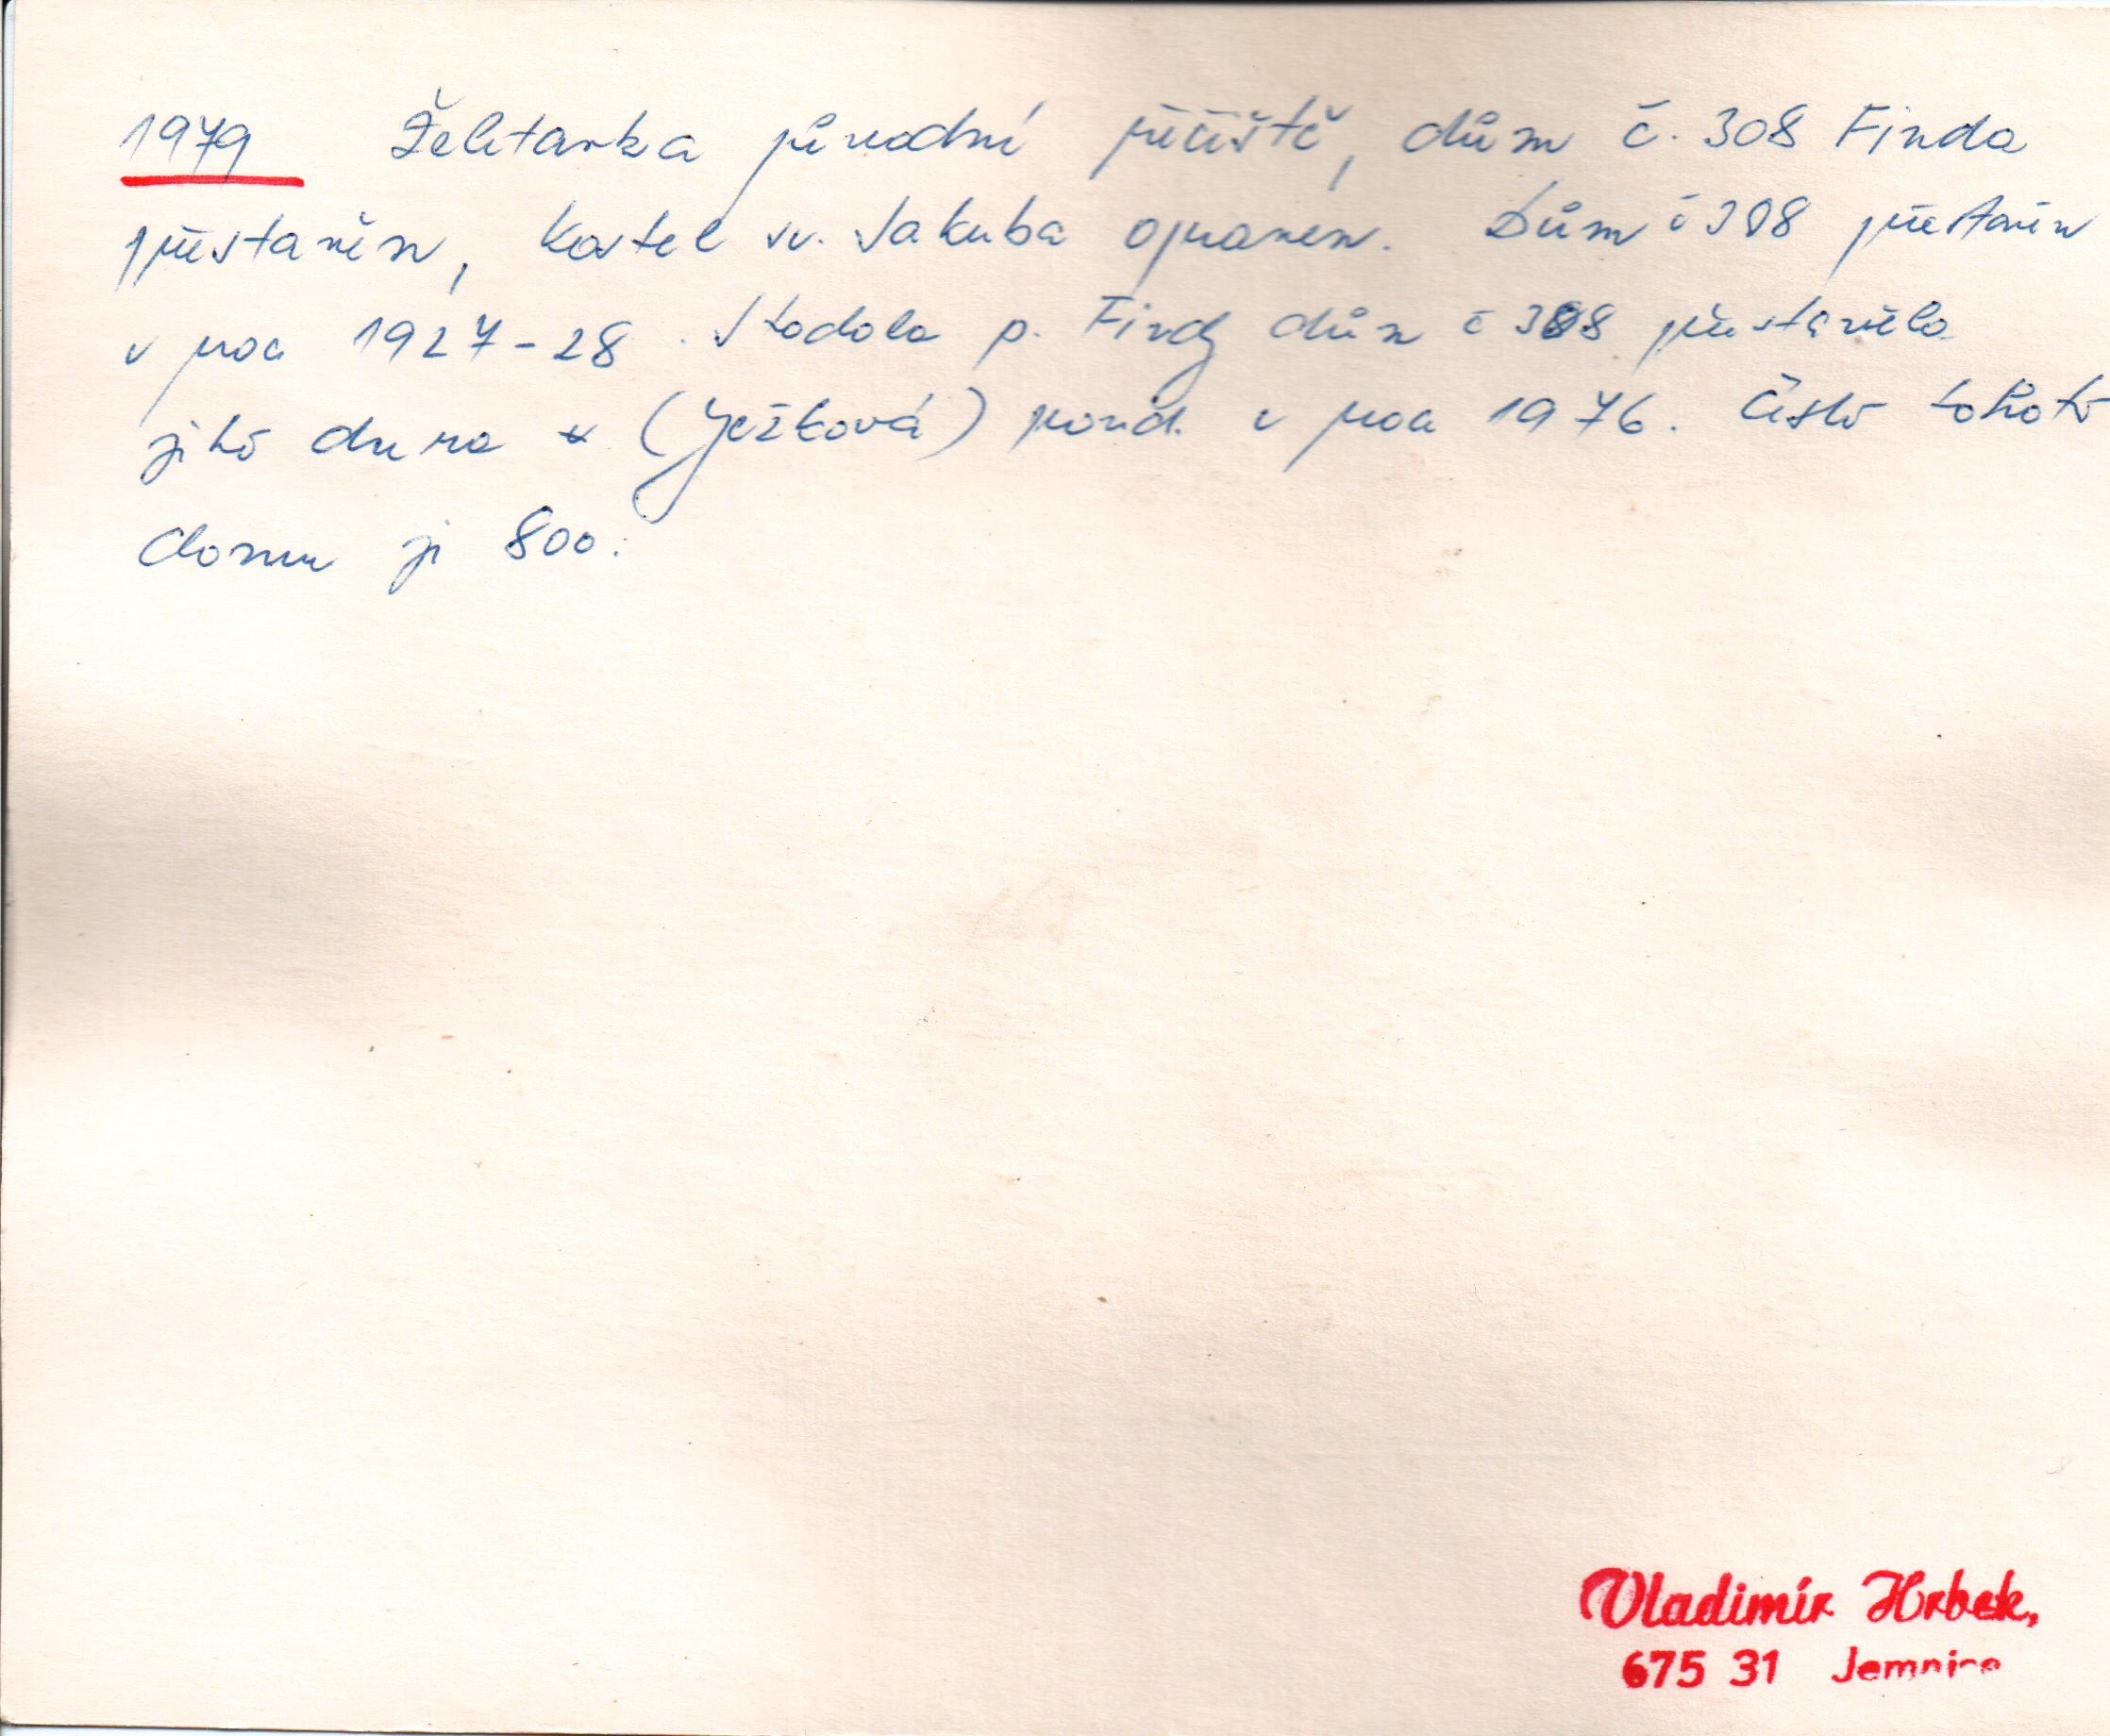 1979 Želetavka původní řečiště, dům č. 308 Finda
přestavěn, kostel sv. Jakuba opraven. Dům č 308 přestavěn
v roce 1927-28. Stodola p. Findy dům č 308 přestavěla
jeho dcera (Ježková) v roce 1976. Číslo tohoto
domu je 800.
Vladimír Hrbek,
675 31 Jemnice